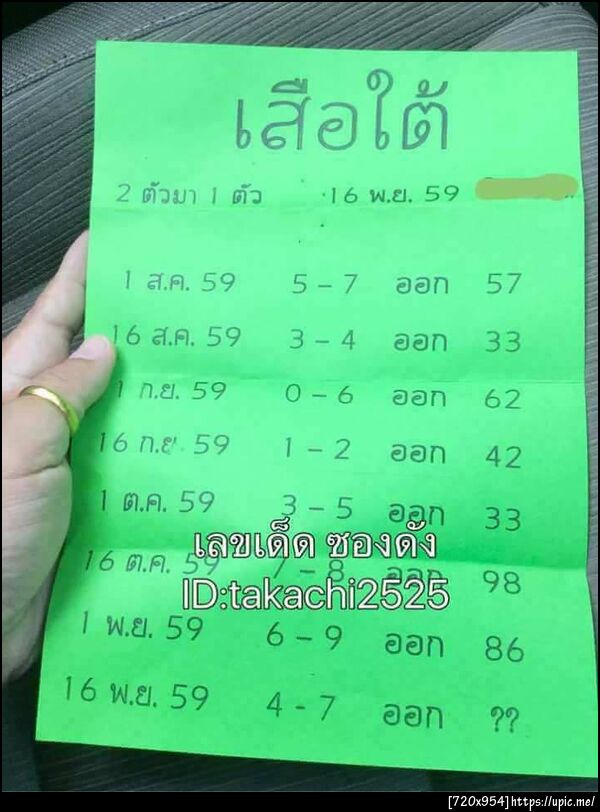 เสือใต้
2 ตัวมา 1 ตัว 16 พ.ย. 59
1 ส.ค. 59 5 - 7 ออก 57
16 ส.ค. 59 3 - 4 ออก 33
1 ก.ย. 59 0 - 6 ออก 62
16 ก.ย. 59 1 - 2 ออก 42
1 ต.ค. 59 3 - 5 ออก 33
เลขเด็ด ซองดัง
16 ต.ค. 59 7 - 8 ออก 98
ID:takachi2525
1 พ.ย. 59 6 - 9 ออก 86
16 พ.ย. 59 4 - 7 ออก ??
[720x954]https://upic.me/